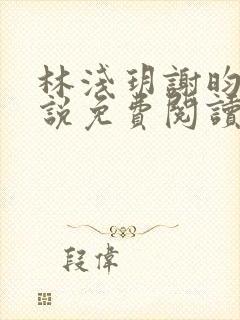 林淺玥謝昀
説免費閱讀
段偉